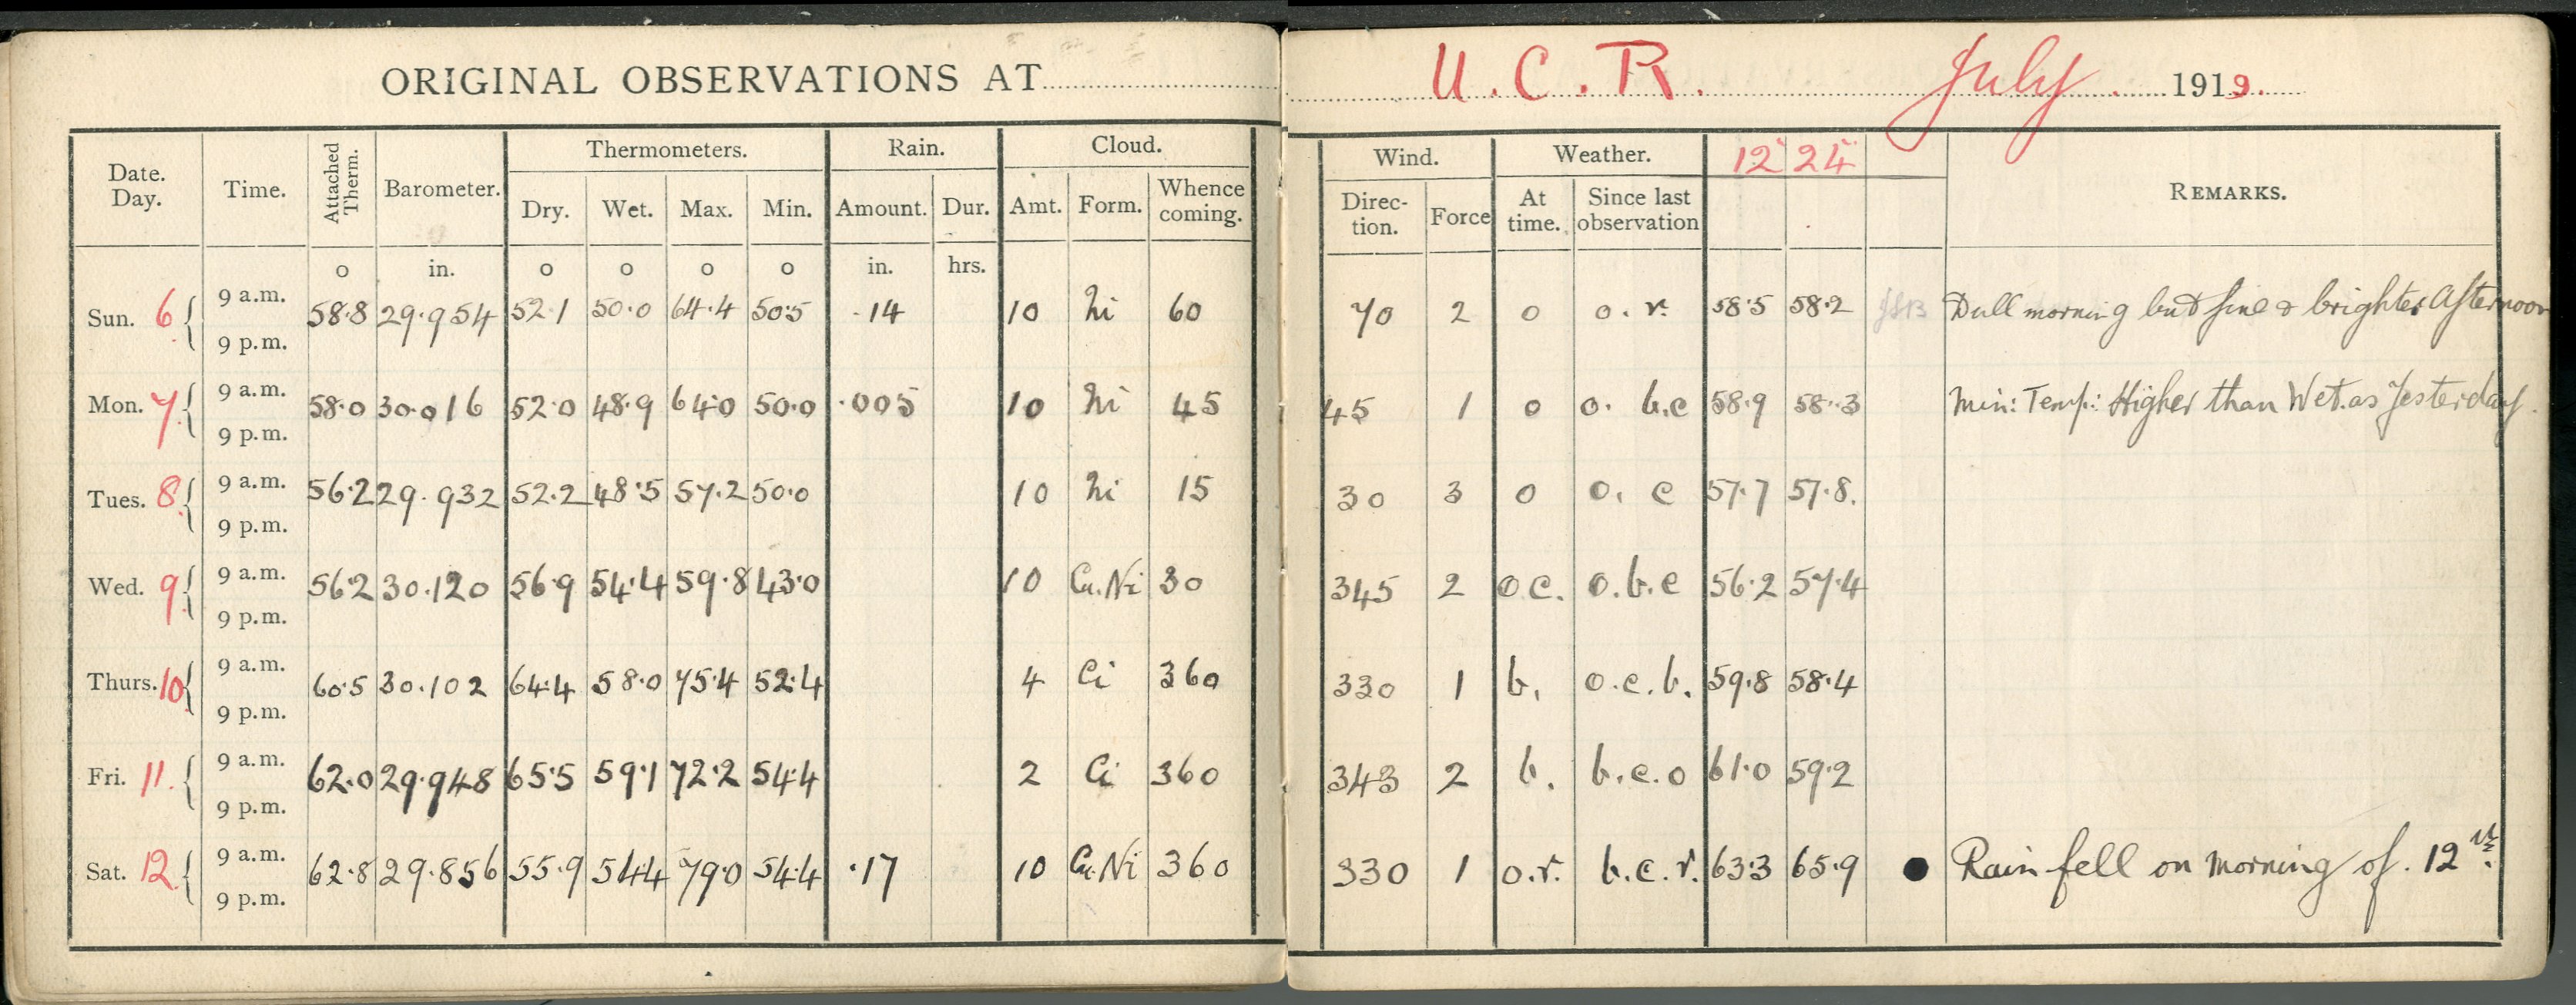 ORIGINAL OBSERVATIONS AT U. C. R. July. 1919.
Date. Day. Time. Attached Therm. Barometer. Thermometers. Rain. Cloud. Wind. Weather. 12" 24" REMARKS.
Dry. Wet. Max. Min. Amount. Dur. Amt. Form. Whence coming. Direction. Force At time. Since last observation
o in. o o o o in. hrs.
Sun. 6 9 a.m. 58.8 29.954 52.1 50.0 64.4 50.5 .14 10 Ni 60 70 2 o o. r. 58.5 58.2 Dull morning but fine & brighter Afternoon
9 p.m.
Mon. 7 9 a.m. 58.0 30.016 52.0 48.9 64.0 50.0 .005 10 Ni 45 45 1 o o. b.c 58.9 58.3 Min: Temp: Higher than Wet. as Yesterday.
9 p.m.
Tues. 8 9 a.m. 56.2 29.932 52.2 48.5 57.2 50.0 10 Ni 15 30 3 o o. c 57.7 57.8.
9 p.m.
Wed. 9 9 a.m. 56.2 30.120 56.9 54.4 59.8 43.0 10 Cu.Ni 30 345 2 o c. o.b.c 56.2 57.4
9 p.m.
Thurs. 10 9 a.m. 60.5 30.102 64.4 58.0 75.4 52.4 4 Ci 360 330 1 b. o.c.b. 59.8 58.4
9 p.m.
Fri. 11. 9 a.m. 62.0 29.948 65.5 59.1 72.2 54.4 2 Ci 360 343 2 b. b.c.o 61.0 59.2
9 p.m.
Sat. 12. 9 a.m. 62.8 29.856 55.9 54.4 79.0 54.4 .17 10 Cu.Ni 360 330 1 o.r. b.c.r. 63.3 65.9 ● Rain fell on morning of. 12th.
9 p.m.